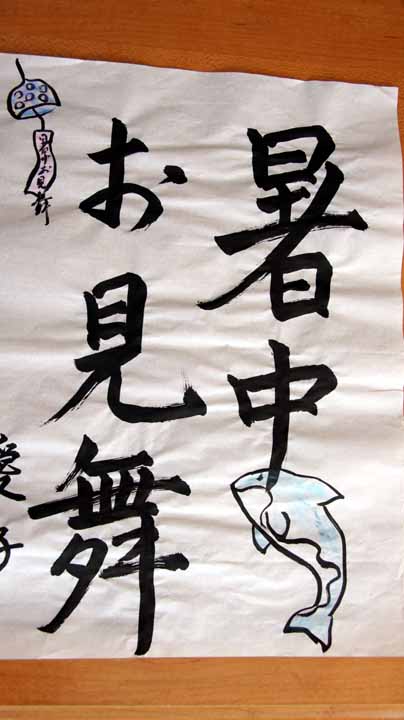 暑中
お見舞
暑中お見舞
愛子